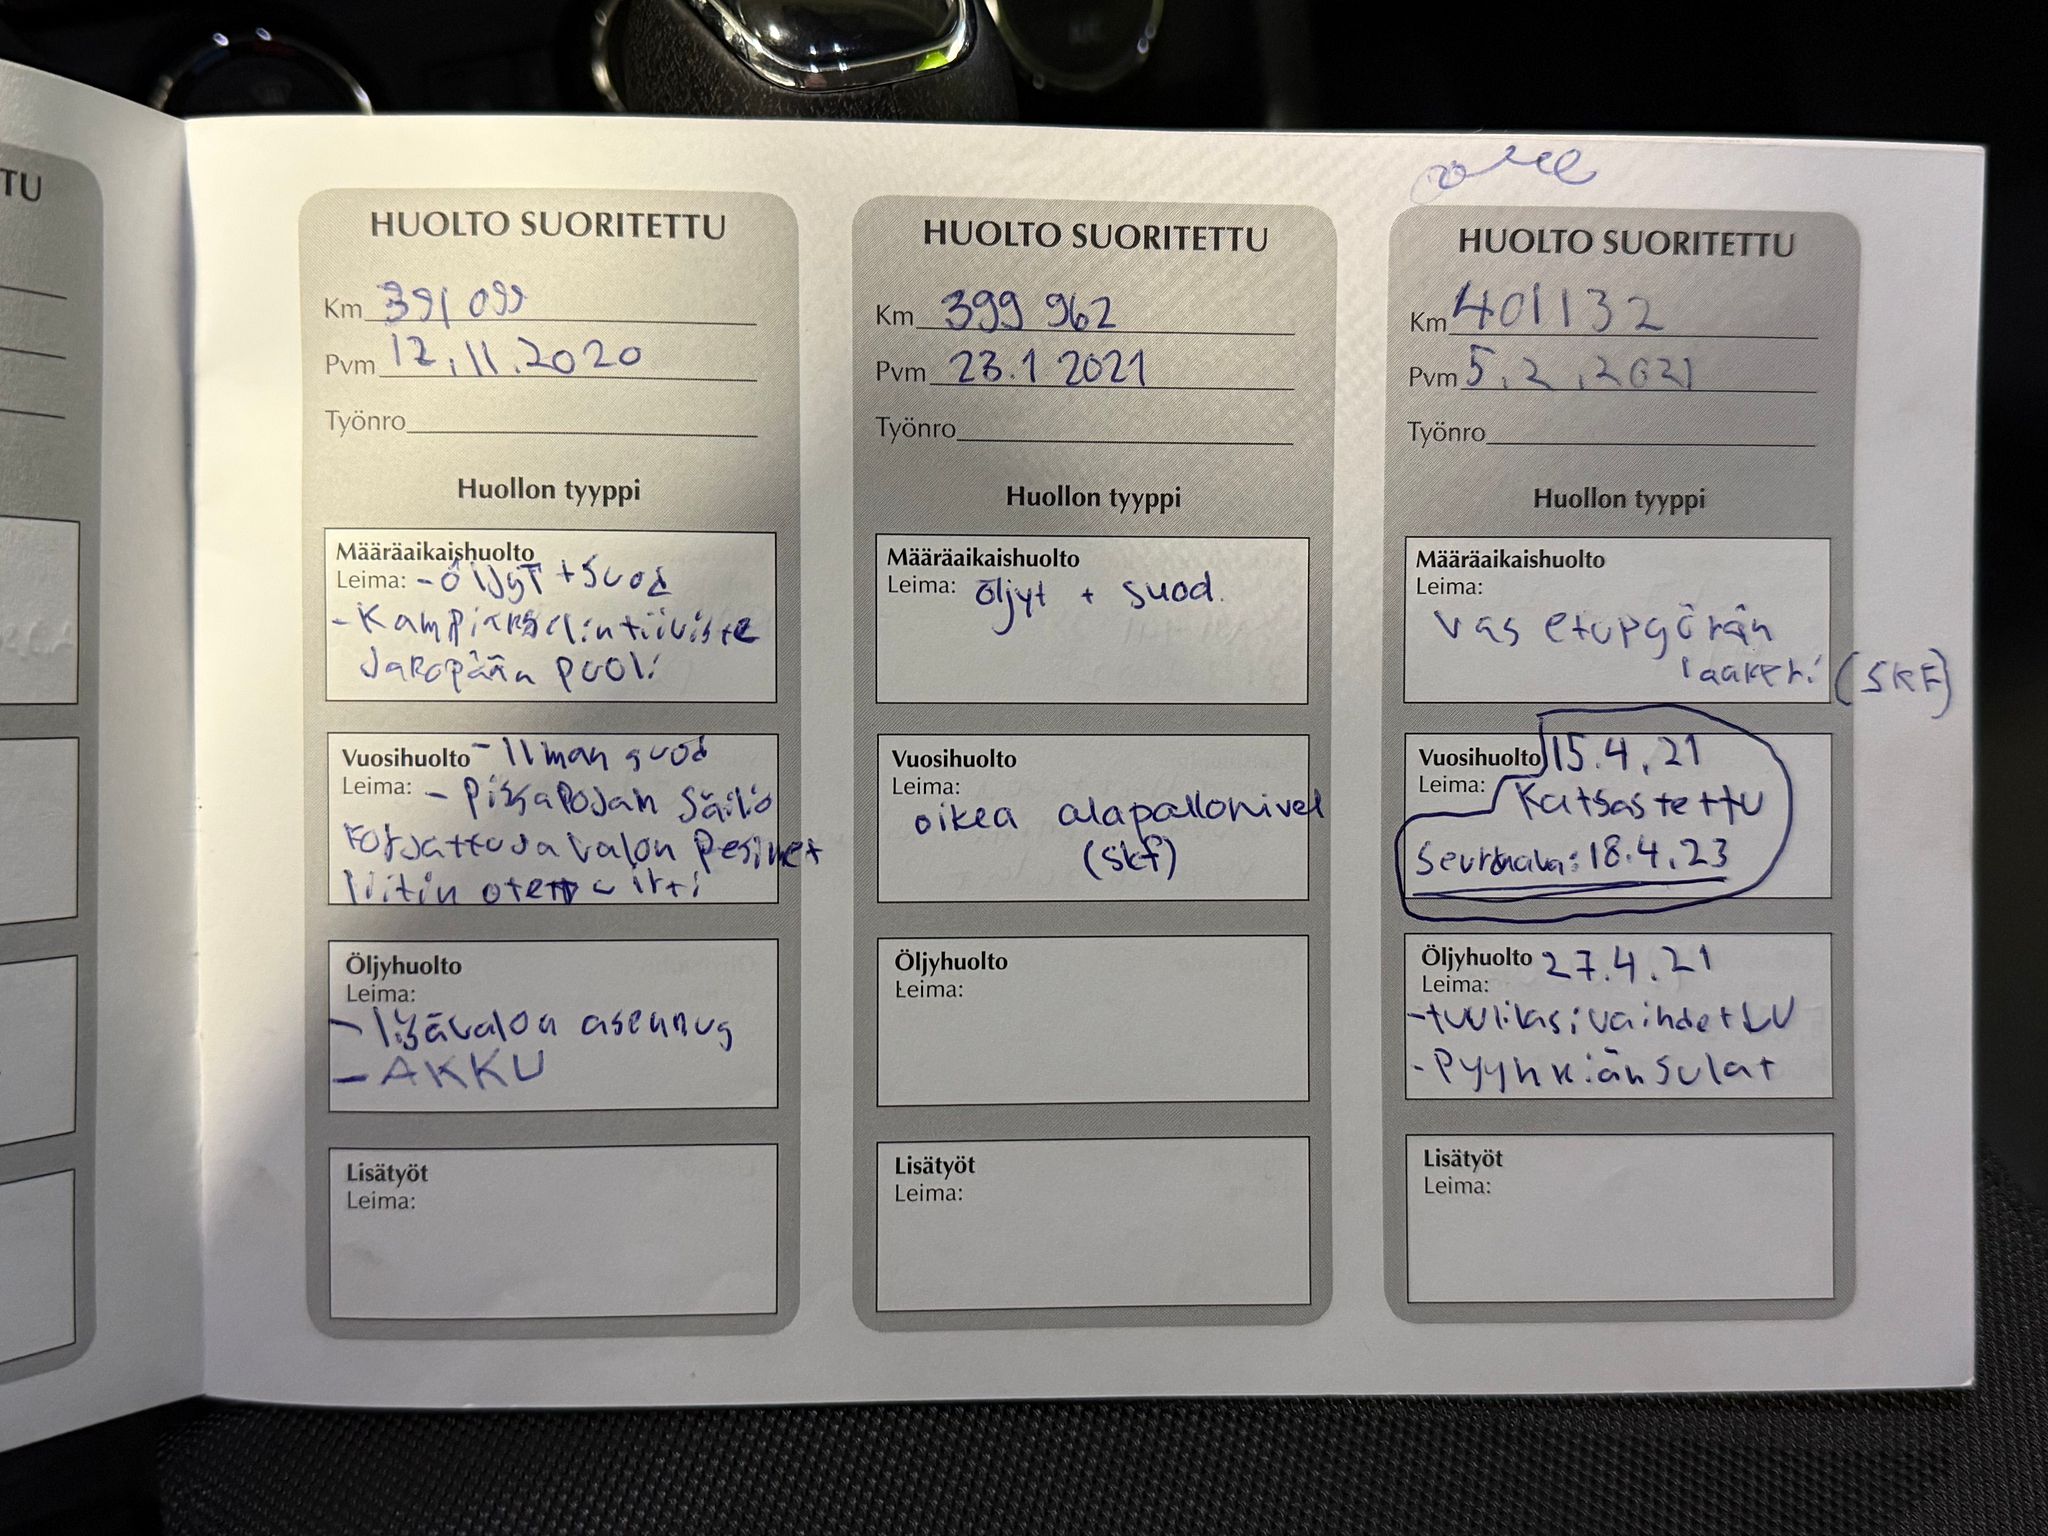 TU
HUOLTO SUORITETTU
Km 391 099
Pvm 12.11.2020
Työnro
Huollon tyyppi
Määräaikaishuolto
Leima: - Öljyt + suod
- Kampiakselin tiiviste
Jakopään puoli
Vuosihuolto - Ilman suod
Leima: - pissapojan säiliö
korjattu ja valon pesimet
liitin otettu irti
Öljyhuolto
Leima:
- lisävalon asennus
- AKKU
Lisätyöt
Leima:
HUOLTO SUORITETTU
Km 399 962
Pvm 23.1 2021
Työnro
Huollon tyyppi
Määräaikaishuolto
Leima: Öljyt + suod.
Vuosihuolto
Leima:
oikea alapallonivel
(skf)
Öljyhuolto
Leima:
Lisätyöt
Leima:
HUOLTO SUORITETTU
Km 401132
Pvm 5.2.2021
Työnro
Huollon tyyppi
Määräaikaishuolto
Leima:
vas etupyörän
laakeri (SKF)
Vuosihuolto 15.4.21
Leima: Katsastettu
18.4.23
Öljyhuolto 27.4.21
Leima:
- tuulilasi vaihdettu
- Pyyhkiän sulat
Lisätyöt
Leima: